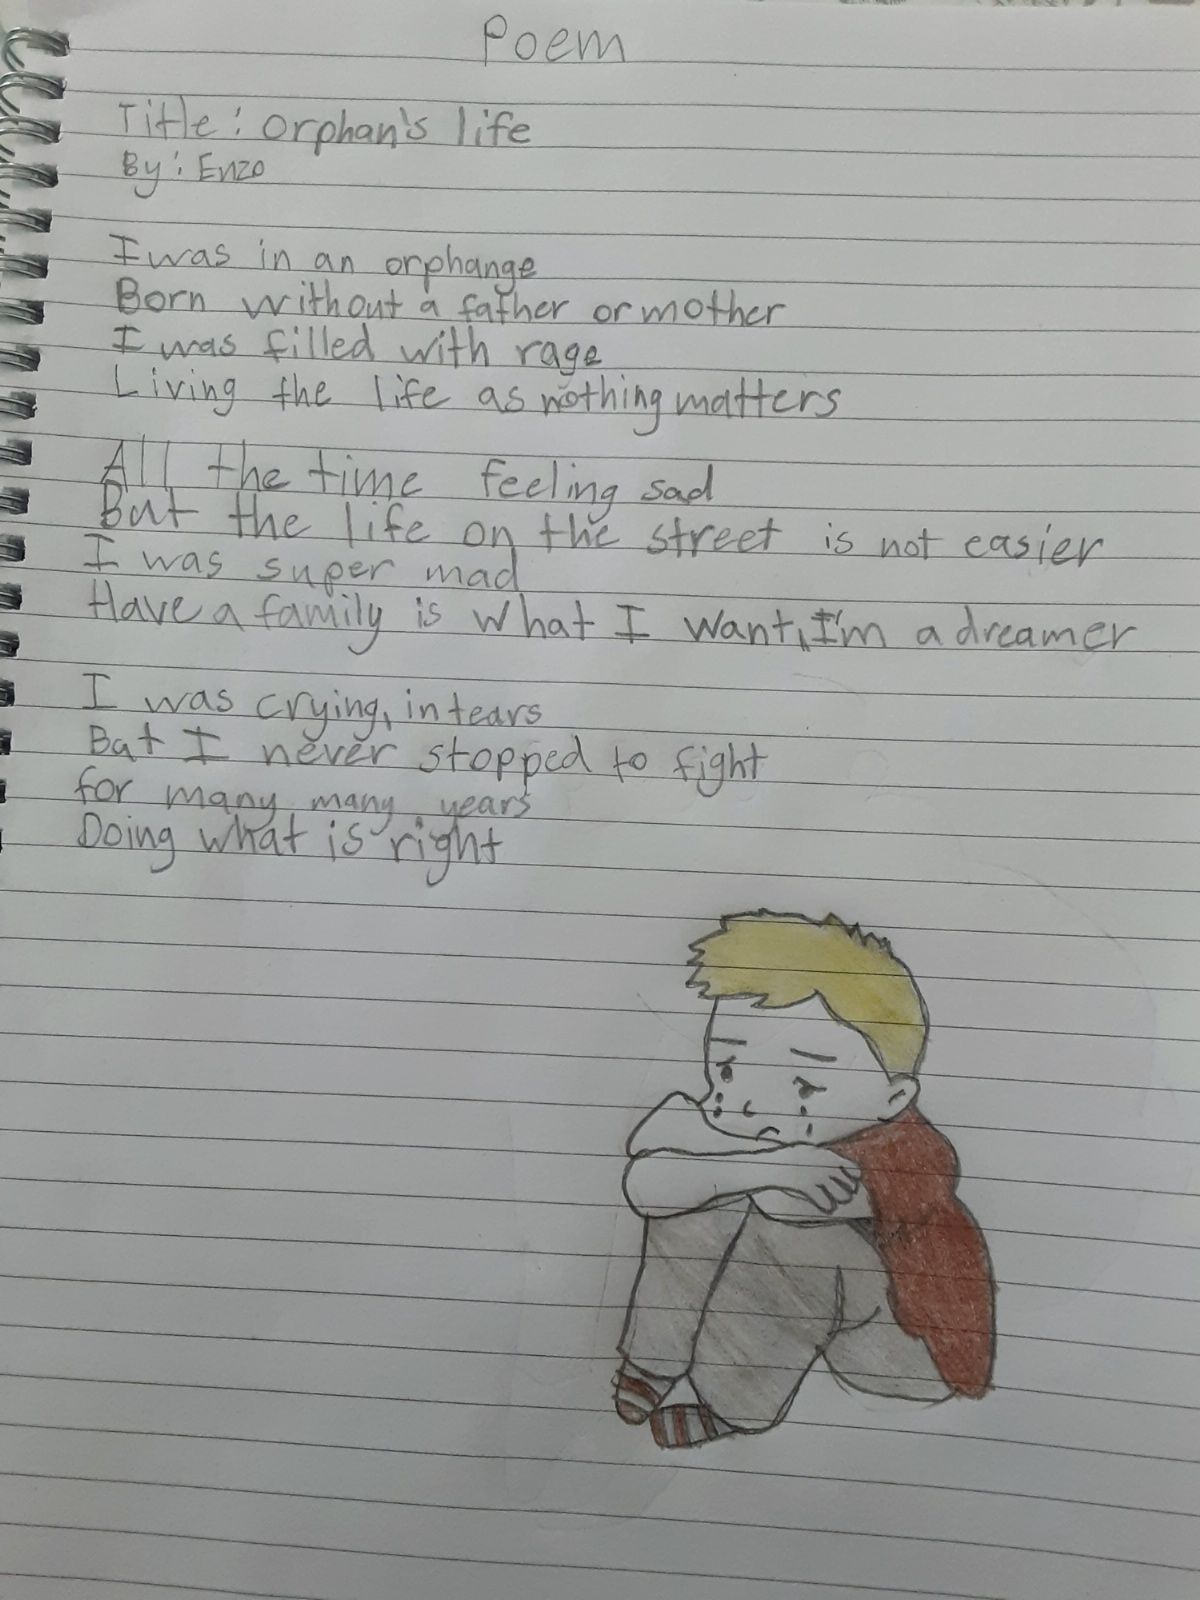 Poem
Title: Orphan's life
By: Enzo
I was in an orphange
Born without a father or mother
I was filled with rage
Living the life as nothing matters
All the time feeling sad
But the life on the street is not easier
I was super mad
Have a family is what I want, I'm a dreamer
I was crying, in tears
But I never stopped to fight
for many many years
Doing what is right